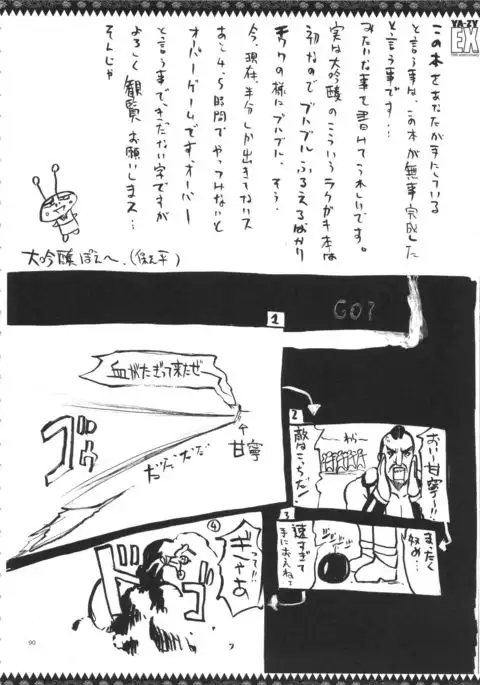 YA-ZY
EX
この本をあなたが手にしている
と言う事は、この本が無事完成した
と言う事です…。
みたいな事を書けてうれしいです。
実は大吟醸のこういうラクガキ本は
初なので ブルブルふるえるばかり
チワワの様にブルブル。そう、
今、現在、半分しか出きてないス
あと4、5時間でやっつけないと
オーバーゲームです。オーバー
と言う事で、きったない字ですが
よろしく観覧お願いしまス…
そんじゃ
大吟醸ぼえ〜。
GO?
1
血がたぎって来たぜ
ブゥ
甘寧
2
おい甘寧!!
わ〜
敵はこっちだ!
3
まったく
奴め…
速すぎて
手におえねえ
4
ぎゃあ
って!!
ドゴ
90